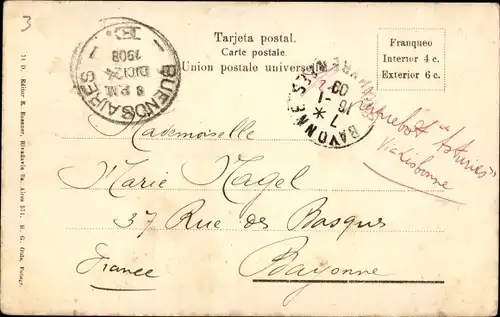 3
Tarjeta postal.
Carte postale.
Union postale universe
Franqueo
Interior 4 c.
Exterior 6 c.
BUENOS AIRES
6 P.M.
DIC 24
1908
BAYONNE
7
16-1
09
Paquebot "Asturias"
Via Lisbonne
Mademoiselle
Marie Nagel
37 Rue des Basques
Bayonne
France
Editor R. Rosauer, Rivadavia Bs. Aires 571.